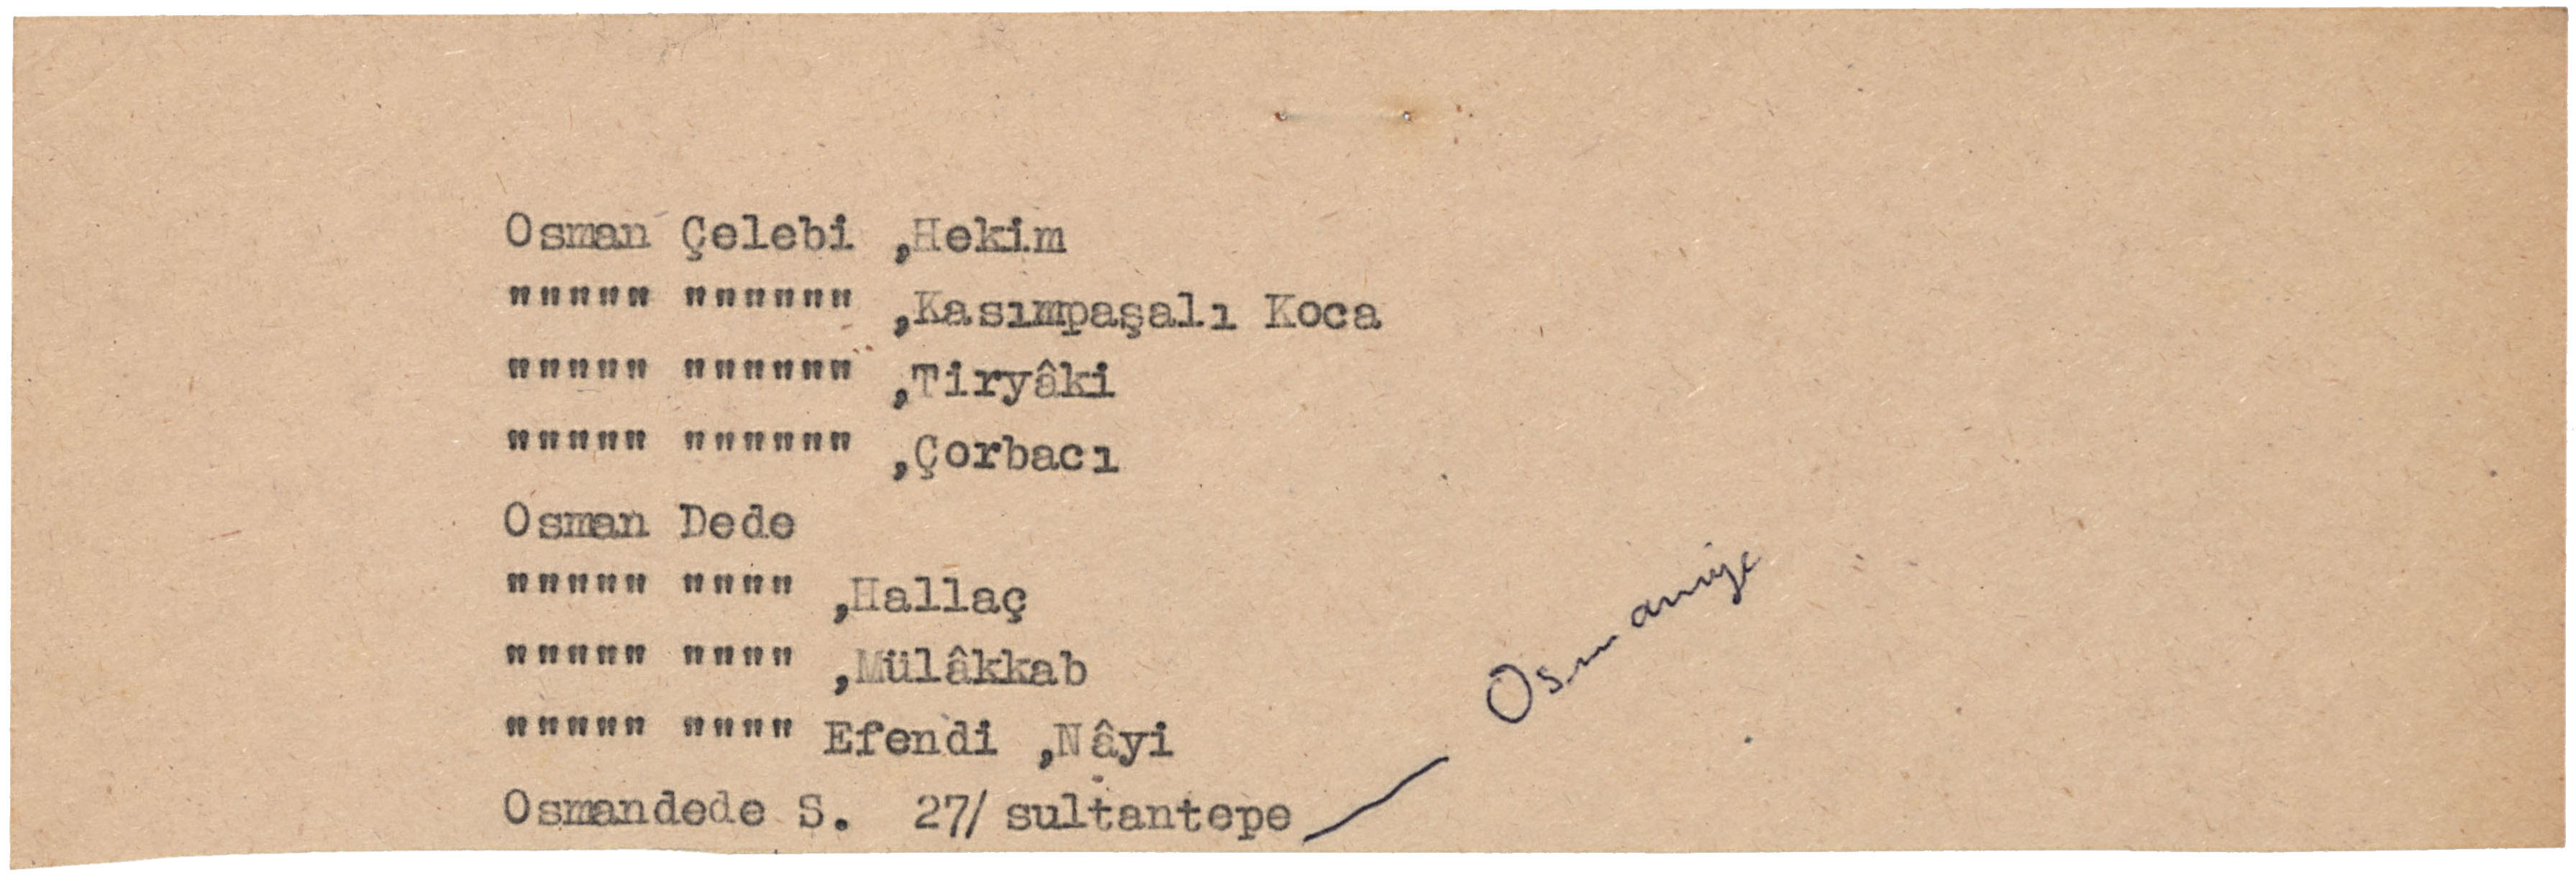 Osman Çelebi ,Hekim
""""" """""" ,Kasımpaşalı Koca
""""" """""" ,Tiryâki
""""" """""" ,Çorbacı
Osman Dede
""""" """" ,Hallaç
""""" """" ,Mülâkkab
""""" """" Efendi ,Nâyi
Osmandede S. 27/ sultantepe
Osmaniye